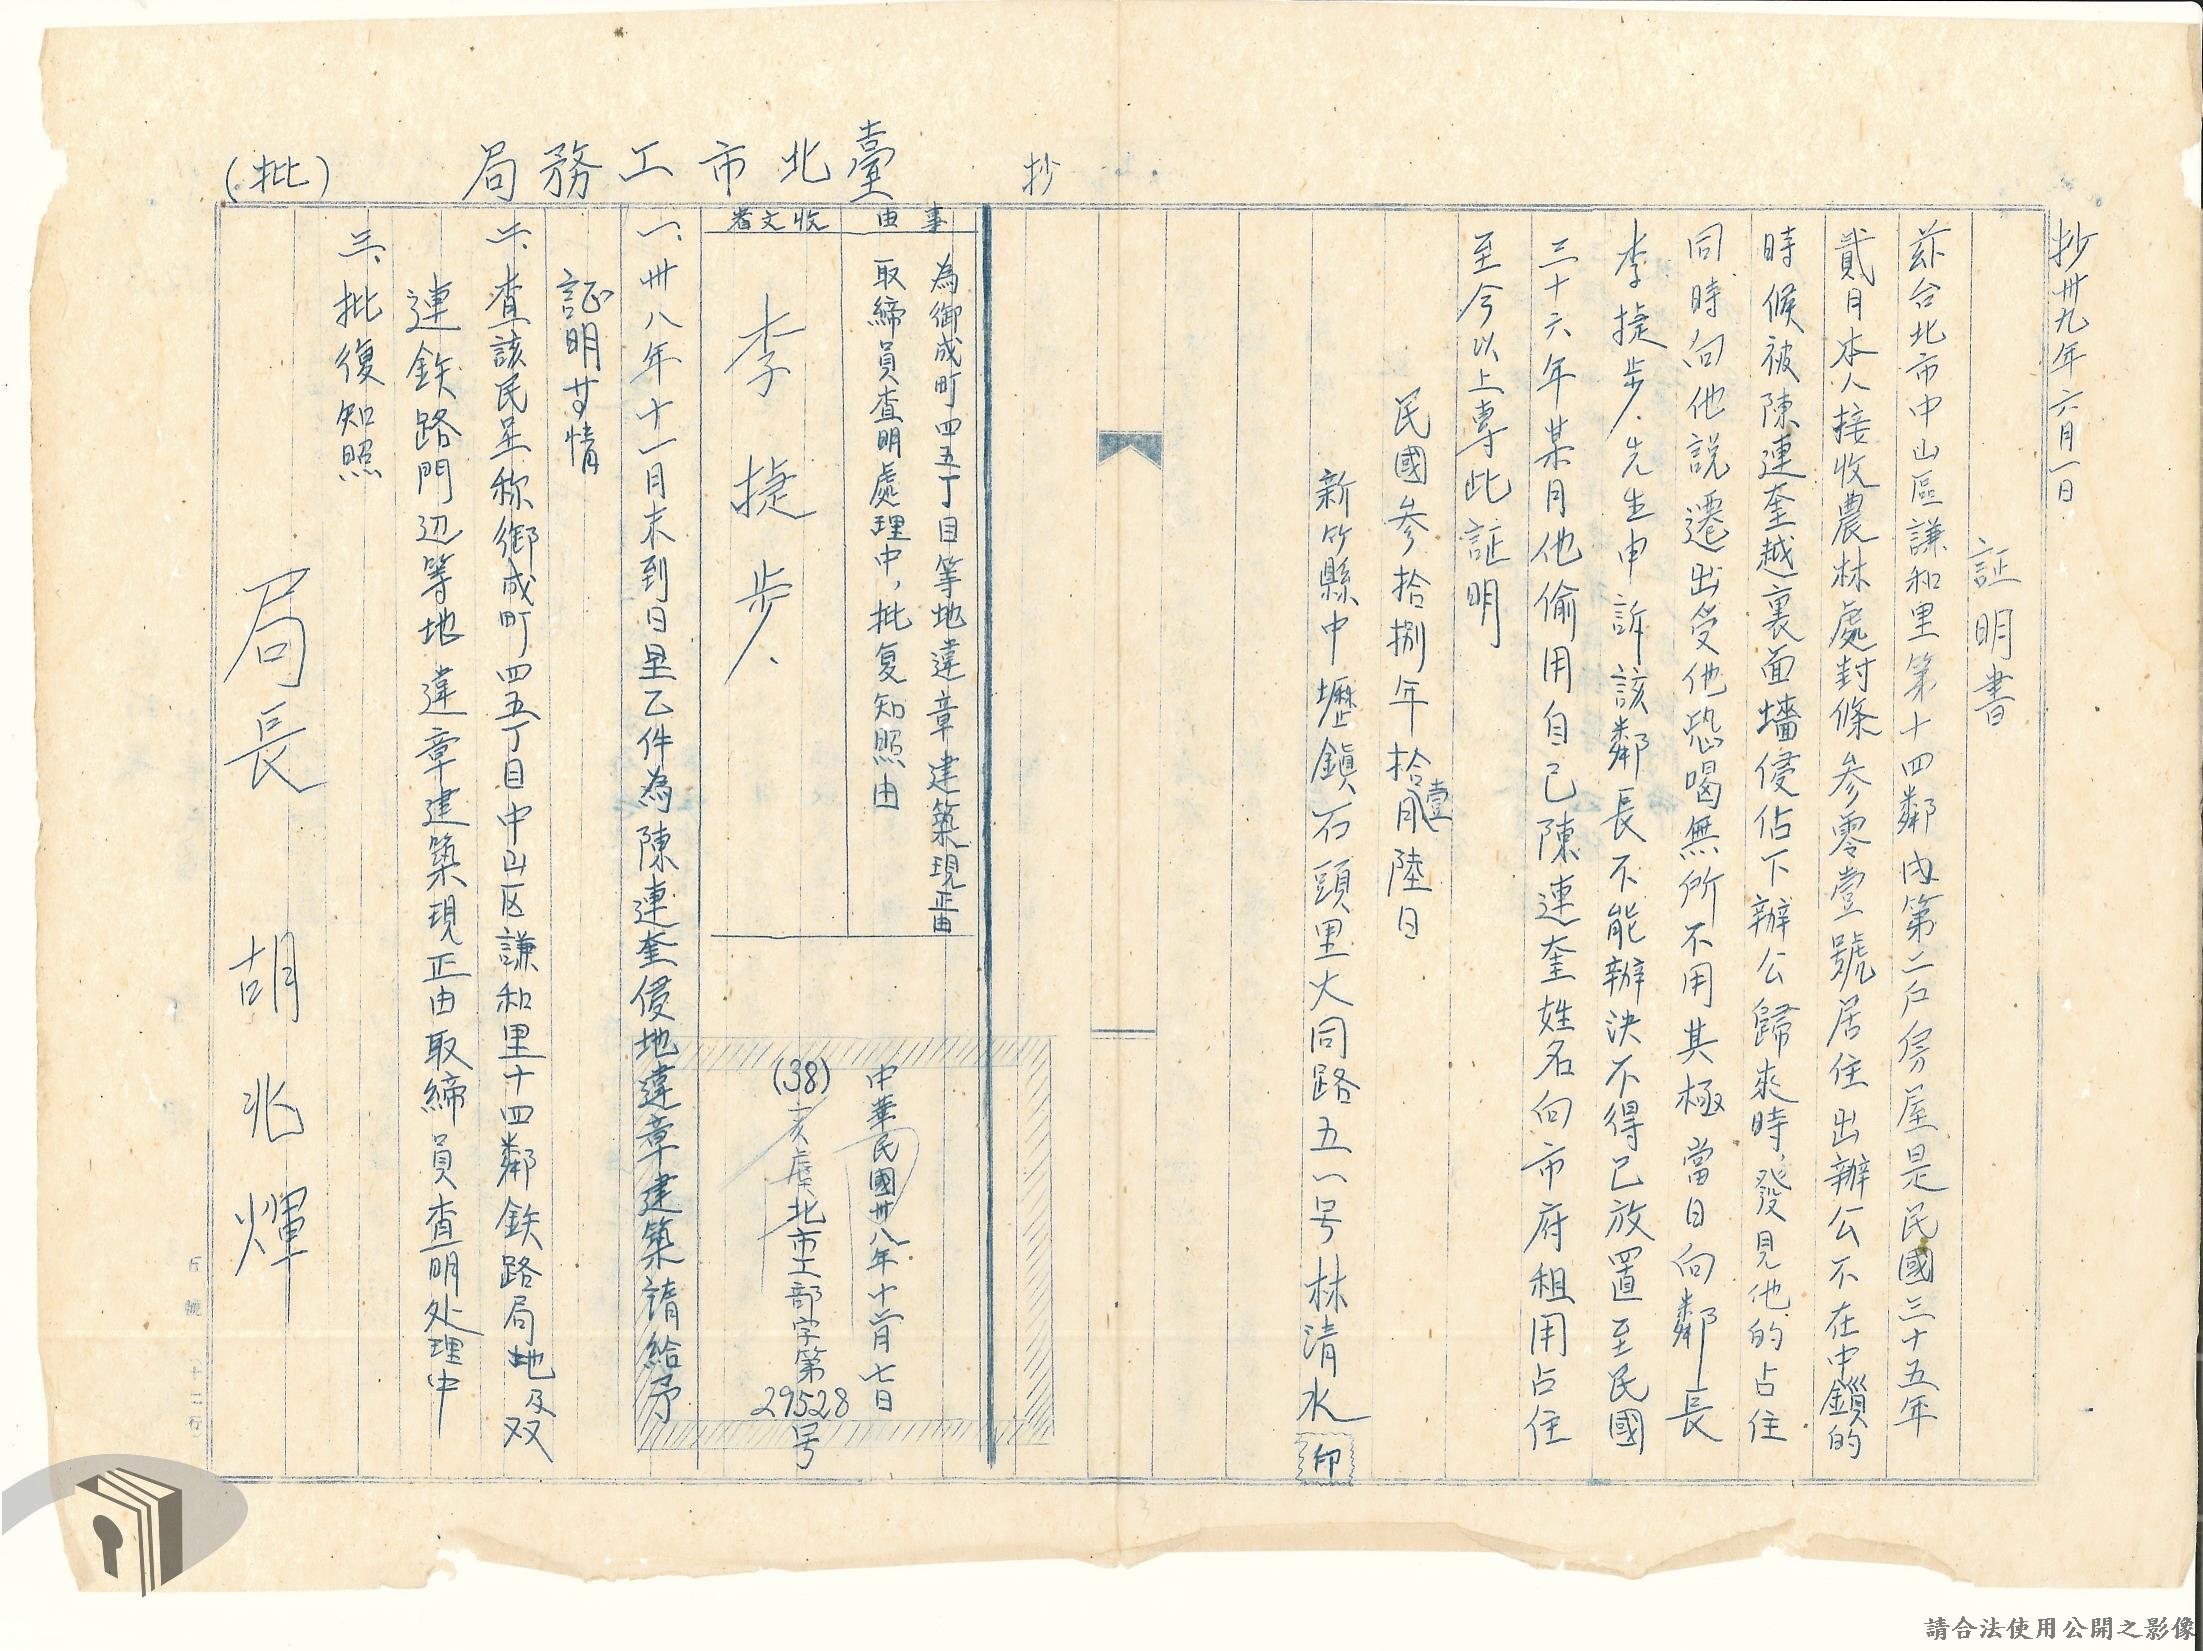 抄卅九年六月一日
証明書
茲台北市中山區謙和里第十四鄰内第二户房屋是民國三十五年
貳月本人接收農林處封條参零壹號居住出辦公不在中鎖的
時候被陳連奎越裏面墻侵佔下辦公歸來時發見他的占住
同時向他説遷出受他恐喝無所不用其極當日向鄰長
李捷步先生申訴該鄰長不能辦決不得已放置至民國
三十六年某月他偷用自己陳連奎姓名向市府租用占住
至今以上專此証明
民國参拾捌年拾壹月陸日
新竹縣中壢鎮石頭里大同路五一号林清水
印
抄
臺北市工務局
(批)
事由
為御成町四五丁目等地違章建築現正由
取締員查明處理中,批复知照由
收文者
李捷步
中華民國卅八年十二月七日
(38)亥虞北市工部字第29528号
一、卅八年十一月末到日呈乙件為陳連奎侵地違章建築請給予
証明等情
二、查該民呈称御成町四五丁目中山区謙和里十四鄰鉄路局地及双
連鉄路門辺等地違章建築現正由取締員查明处理中
三、批復知照
局長 胡兆煇
請合法使用公開之影像